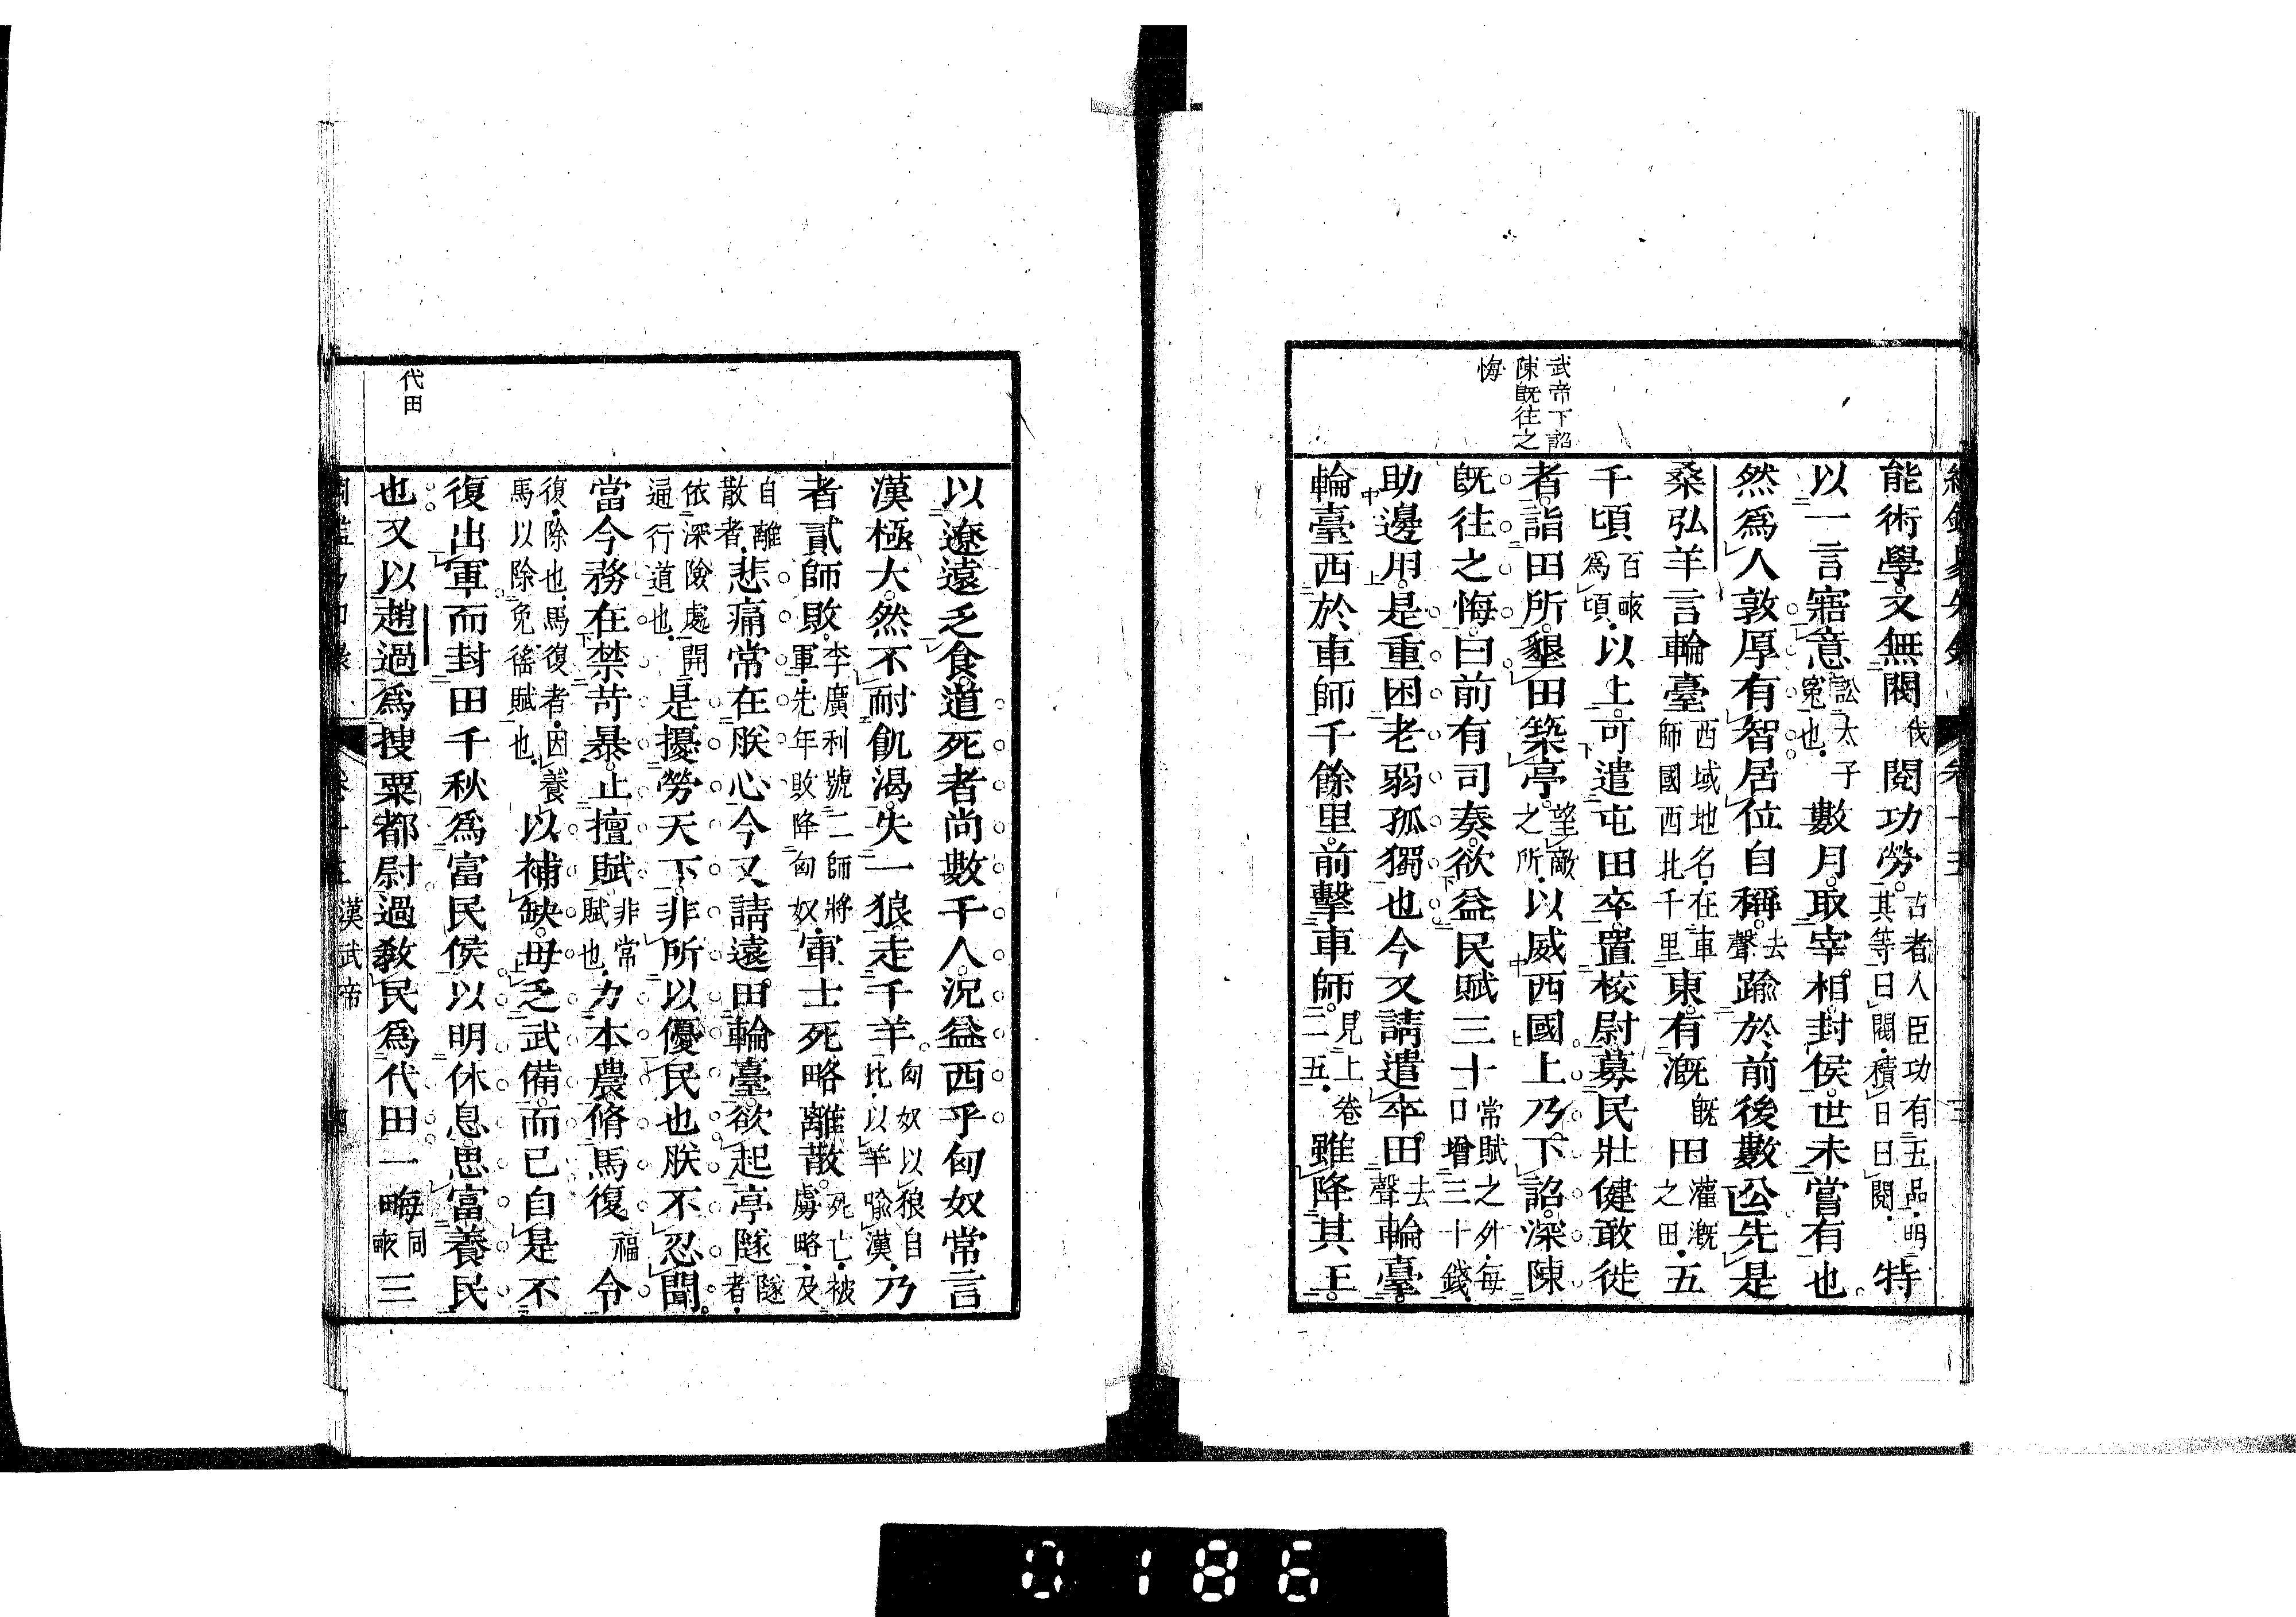 武帝下詔
陳既往之
悔
能術學又無閥伐閱功勞古者人臣功有五品明其等曰閥積日曰閱特
以一言寤意訟太子冤也數月取宰相封侯世未嘗有也
然爲人敦厚有智居位自稱去聲踰於前後數公先是
桑弘羊言輪臺西域地名在車師國西北千里東有漑既田灌漑之田五
千頃百畝爲頃以上可遣屯田卒置校尉募民壯健敢徙
者詣田所墾田築亭望敵之所以威西國上乃下詔深陳
既往之悔曰前有司奏欲益民賦三十常賦之外每口增三十錢
助邊用是重困老弱孤獨也今又請遣卒田去聲輪臺
輪臺西於車師千餘里前擊車師見上卷二五雖降其王
以遼遠乏食道死者尚數千人況益西乎匈奴常言
漢極大然不耐飢渴失一狼走千羊匈奴以狼自比以羊喩漢乃
者貳師敗李廣利號二師將軍先年敗降匈奴軍士死略離散死亡被虜略及
自離散者悲痛常在朕心今又請遠田輪臺欲起亭隧隧者
依深險處開通行道也是擾勞天下非所以優民也朕不忍聞
當今務在禁苛暴止擅賦非常賦也力本農脩馬復福令
復除也馬復者因養馬以除免徭賦也以補缺毋乏武備而已自是不
復出軍而封田千秋爲富民侯以明休息思富養民
也又以趙過爲搜粟都尉過敎民爲代田一畮同畝三
代田
漢武帝
0186